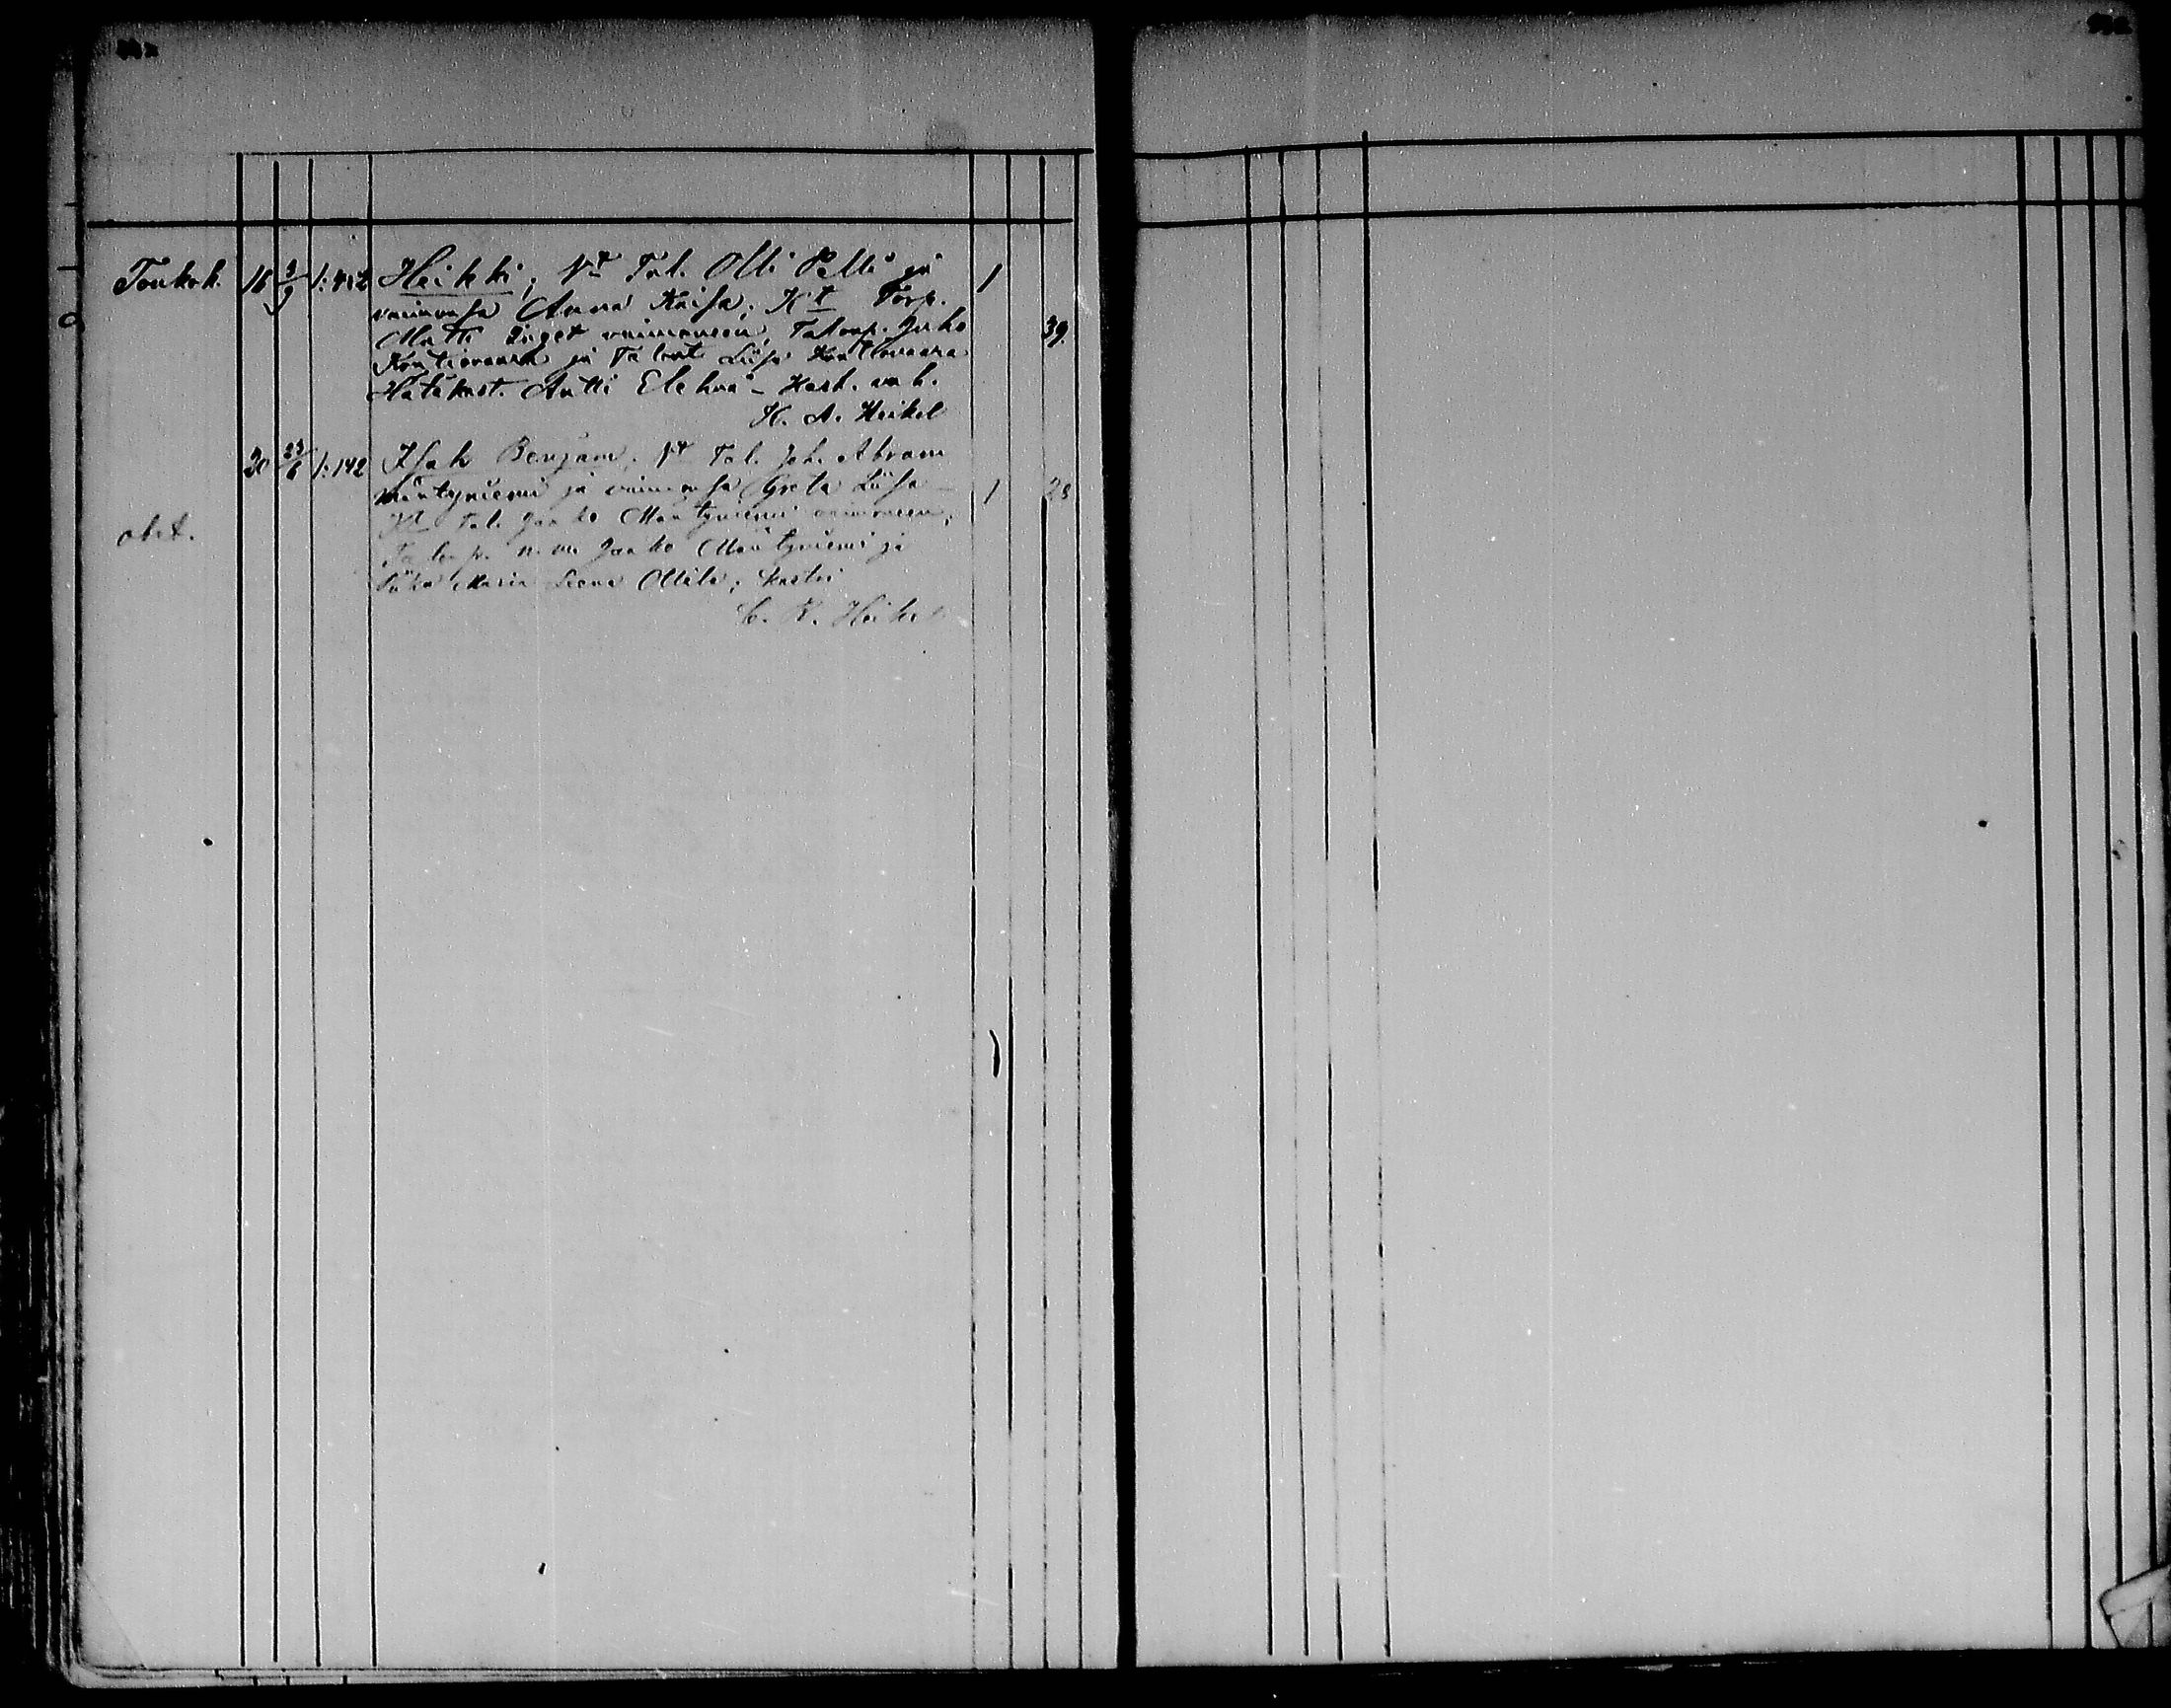 Toukok. 16 3/9 1:412 Heikki; Vt Tal. Olli Pelli ja 1
vaimonsa Anna Kaisa; Kt Torp.
Matti vaimoneen, Talonp. Juho 39.
Kontiovaara ja Liisa Kontiovaara
Hätäkast. Antti Elehvä - Kast. vah.
K. A. Heikel
30 23/6 1:142 Isak Benjam; Vt Tal. Joh. Abram
Mäntyniemi ja vaimonsa Greta Liisa - 1 28
Kt Tal. Jaakko Mäntyniemi vaimoneen;
obit.
n.m. Jaakko Mäntyniemi ja
Piika Maria Leena Ollila; kastoi
C. R. Heikel